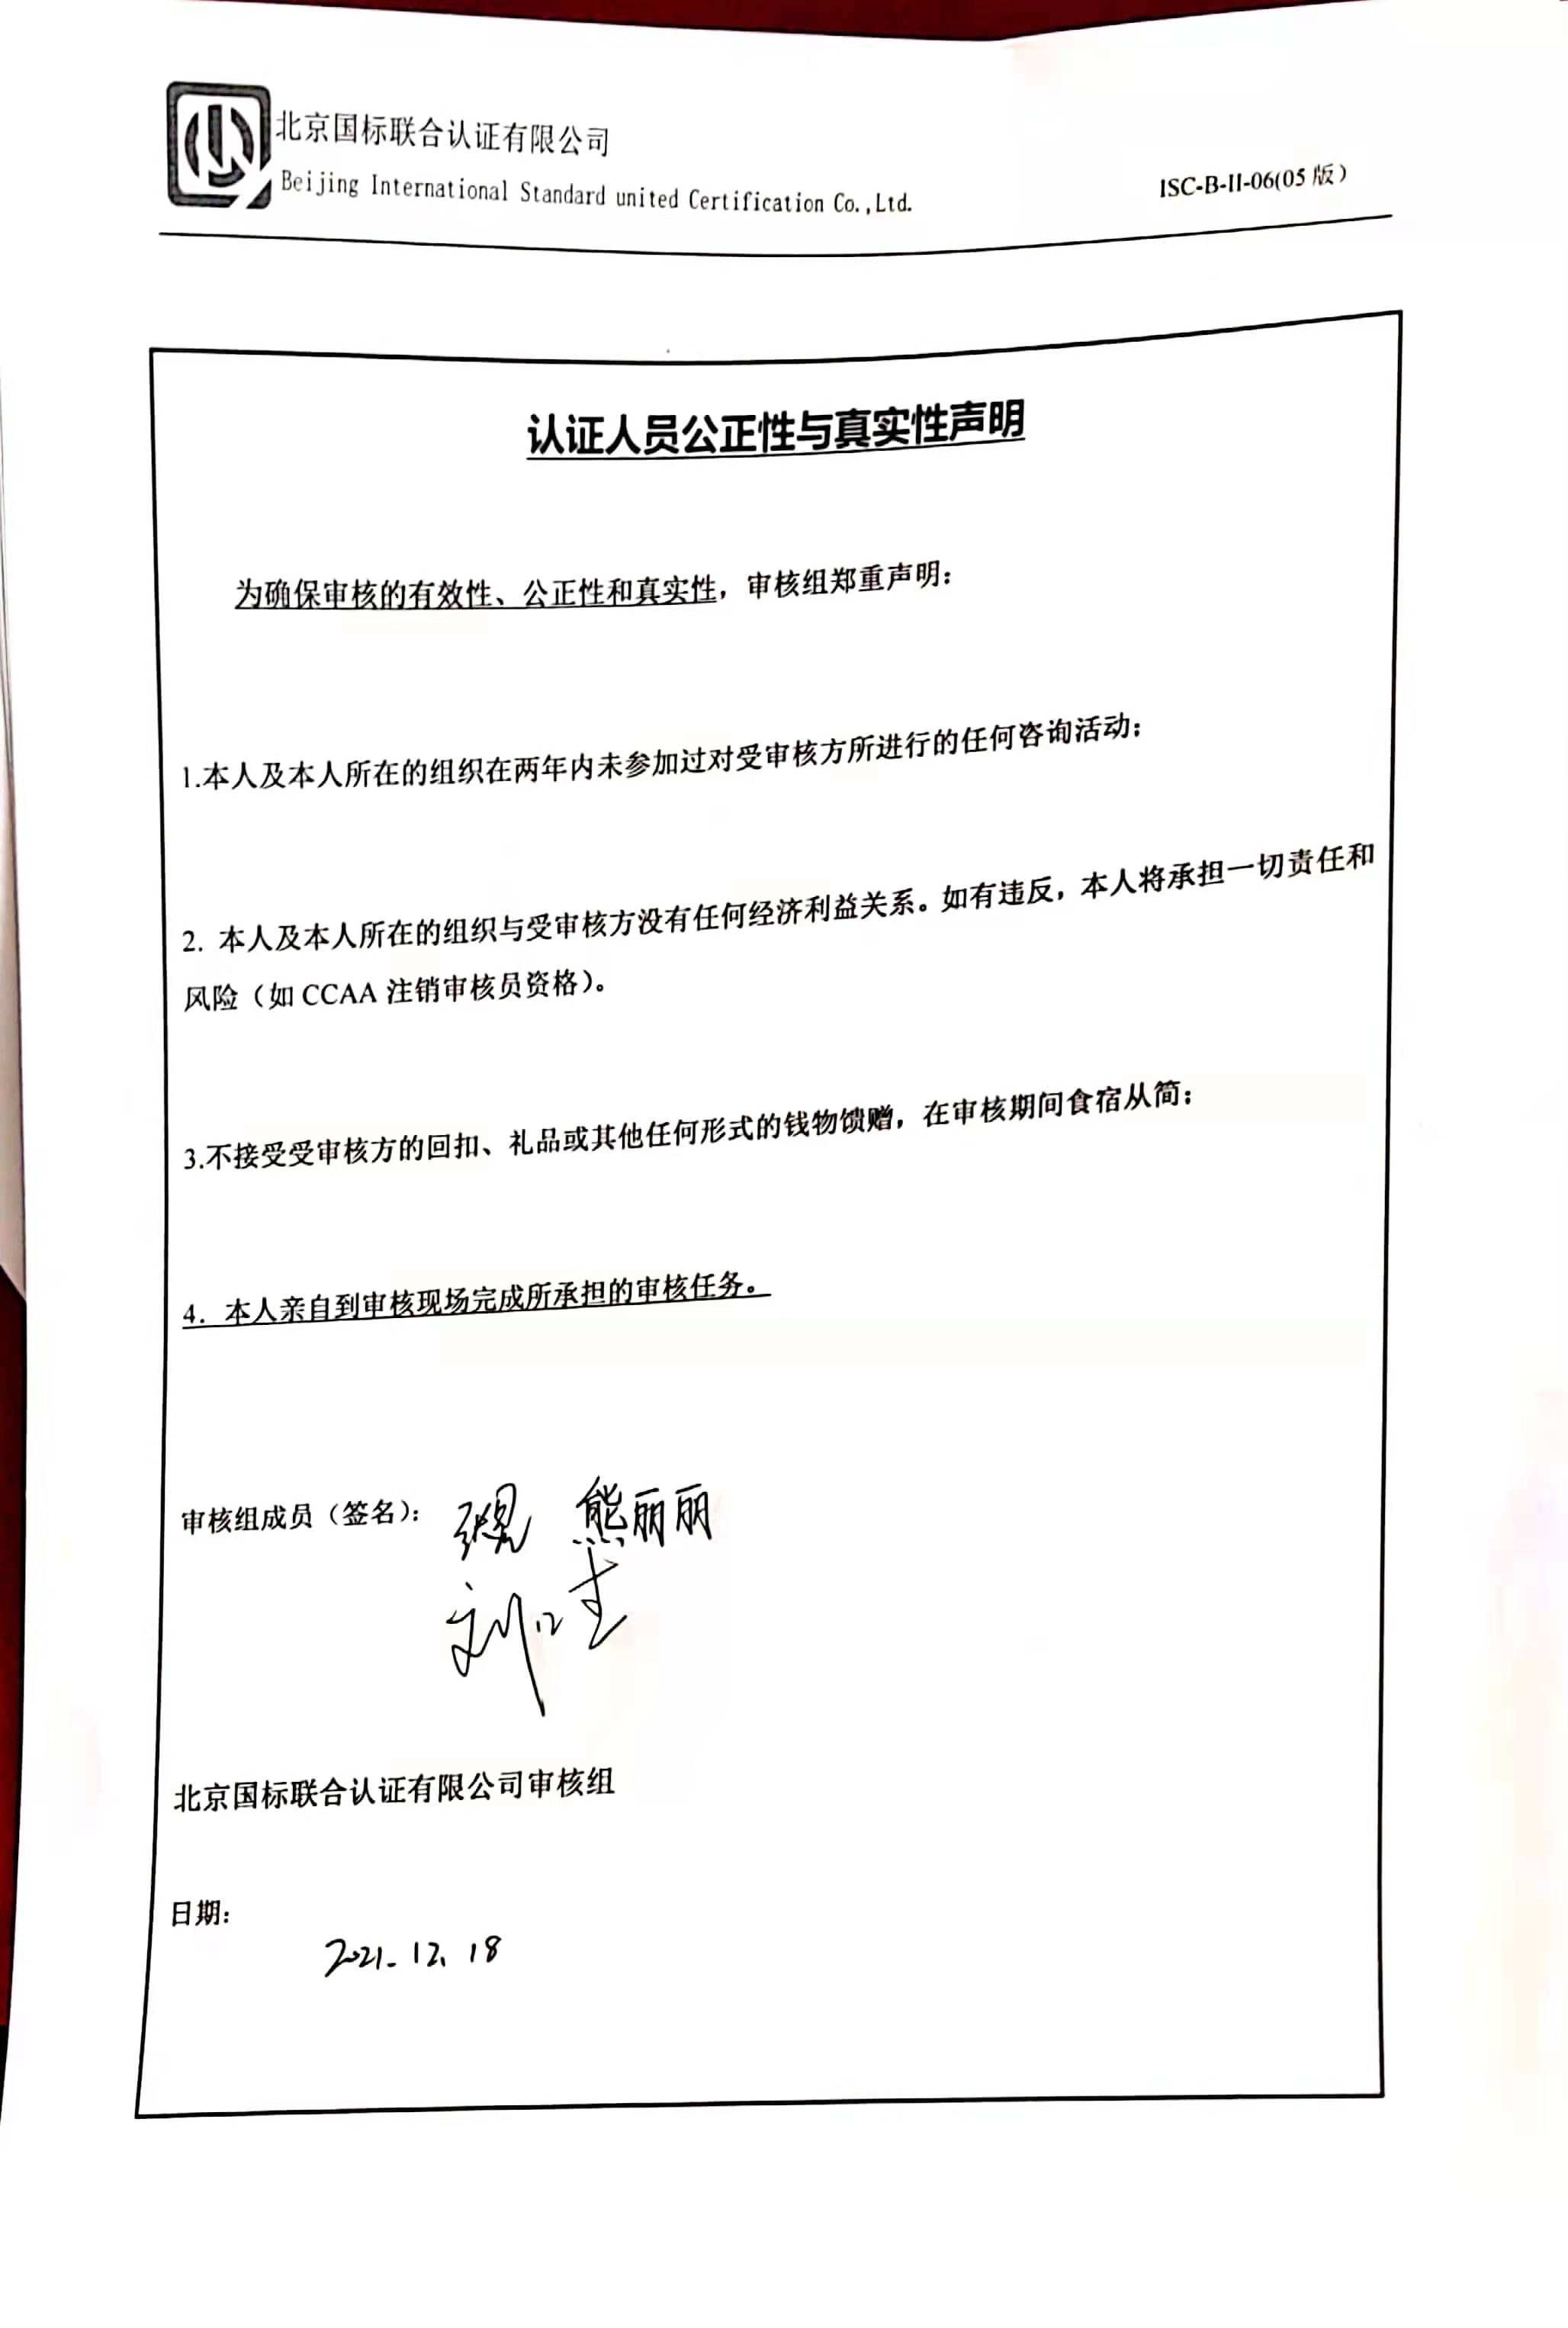 北京国标联合认证有限公司
Beijing International Standard united Certification Co.,Ltd.
ISC-B-II-06(05 版)
认证人员公正性与真实性声明
为确保审核的有效性、公正性和真实性，审核组郑重声明：
1.本人及本人所在的组织在两年内未参加过对受审核方所进行的任何咨询活动；
2. 本人及本人所在的组织与受审核方没有任何经济利益关系。如有违反，本人将承担一切责任和
风险（如 CCAA 注销审核员资格）。
3.不接受受审核方的回扣、礼品或其他任何形式的钱物馈赠，在审核期间食宿从简；
4．本人亲自到审核现场完成所承担的审核任务。
审核组成员（签名）： 熊丽丽
北京国标联合认证有限公司审核组
日期：
2021.12.18